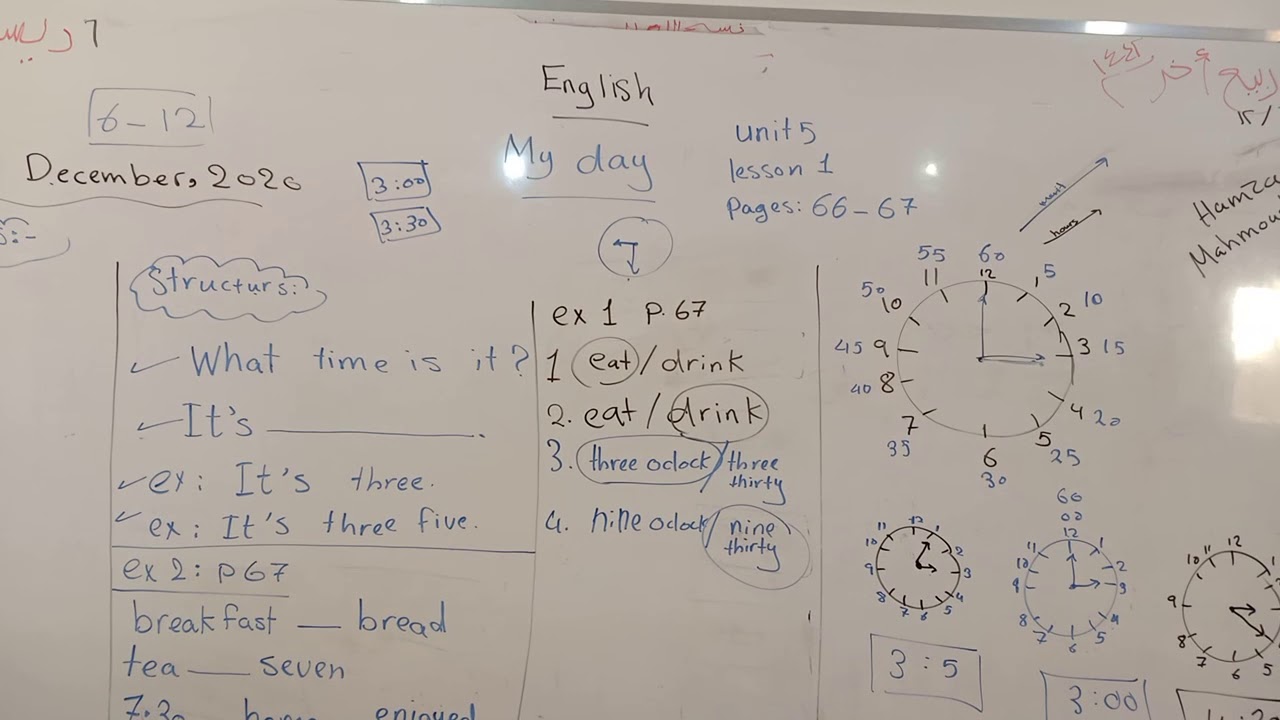 6-12
December, 2020
3:00
3:30
English
My day
unit 5
lesson 1
pages: 66-67
ربيع أخر
١٤٤٢
Hamza
Structurs:
✓ What time is it?
✓ It's ________.
✓ ex: It's three.
✓ ex: It's three five.
ex 2: p 67
breakfast — bread
tea — seven
ex 1 p. 67
1 eat/drink
2. eat/drink
3. three oclock/three thirty
4. nine oclock/nine thirty
minut
hours
55 60 5
50 11 12 1 10
10 2
45 9 3 15
40 8 4 20
35 7 6 5 25
30
12 1 2 3 4 5 6 7 8 9 10 11
3:5
60
00
12 1 2 3 4 5 6 7 8 9 10 11
3:00
12 1 5 6 7 8 9 10 11